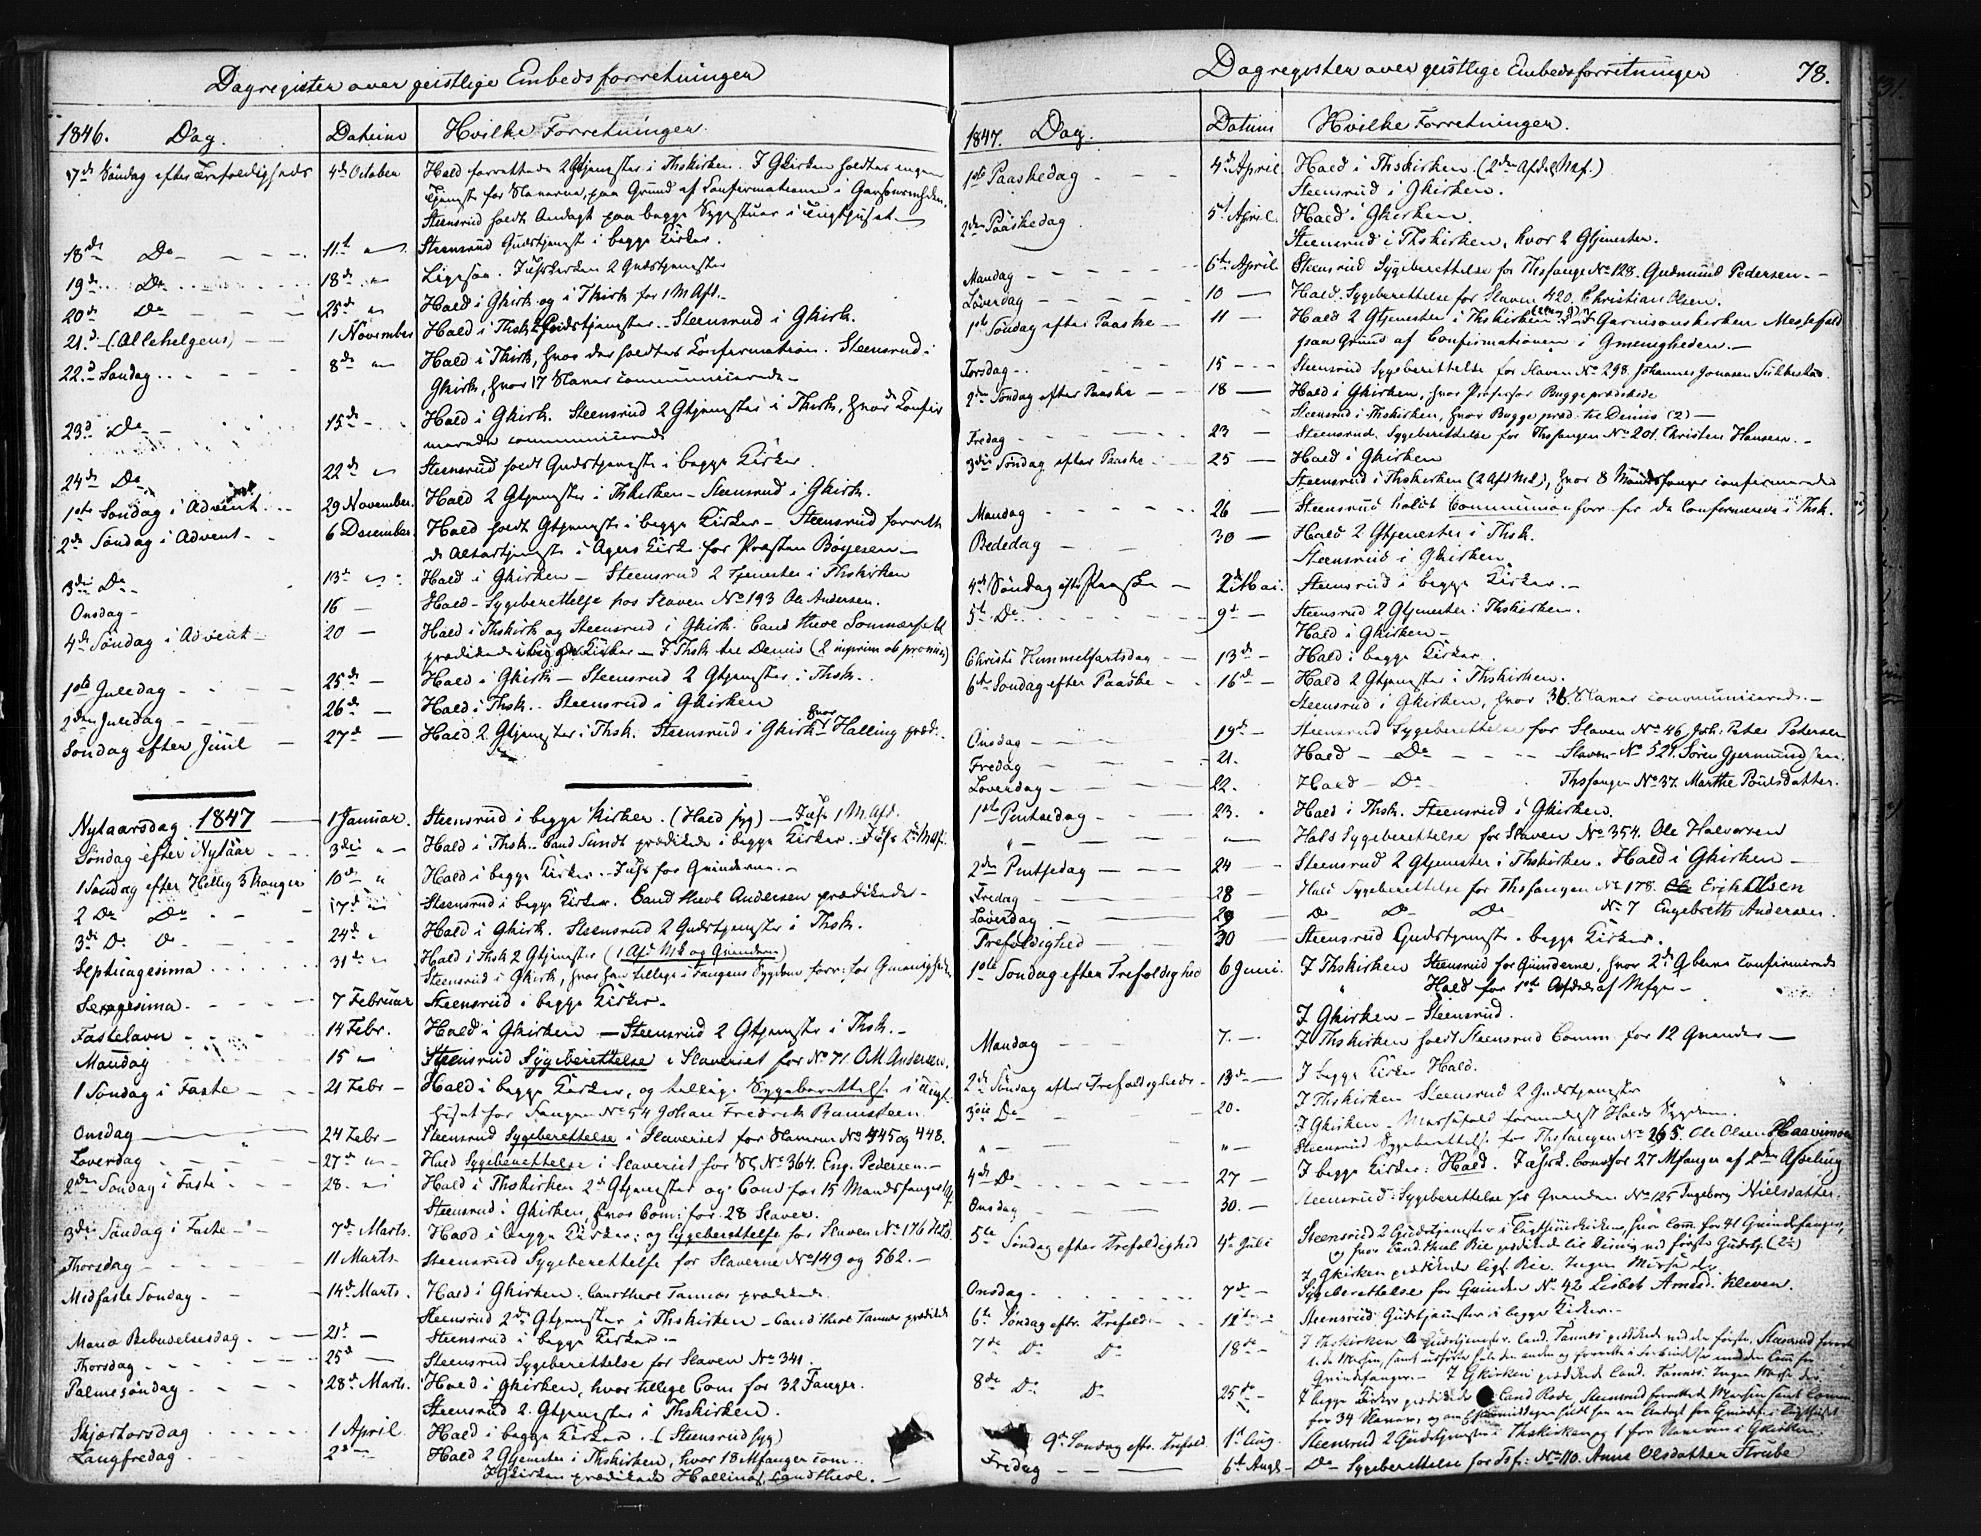 Dagregister over geistlige Embedsforretninger
1846. Dag. Datum Hvilke Forretninger.
17de Søndag efter Trefoldigheds 4de October Hald forrettede 2 Gtjenester i Thskirken. I Gkirken holdtes ingen
Tjeneste for Slaverne, paa Grund af Confirmationen i Garnisonsmgheden.
Steensrud holdt Andagt paa begge Sygestuer i Tugthuset.
18de Do 11te " Steensrud Gudstjeneste i begge Kirker.
19de Do 18de " Ligesaa. 2 Gudstjenester
20de Do 25de " Hald i Gkirk og i Tkirk for 1 M Afd.
21d (Allehelgens) 1 November Hald i Thsk 2 Gudstjenester. Steensrud i Gkirk.
22d Søndag 8de " Hald i Thkirk, hvor der holdtes Confirmation. Steensrud i
Gkirk, hvor 17 Slaver communicerede
23d Do 15de Hald i Gkirk. Steensrud 2 Gtjenester i Thkirk, hvor de Confir
merede communicerede
24de Do 22de " Steensrud holdt Gudstjeneste i begge Kirker.
1ste Søndag i Advent 29 November. Hald 2 Gtjenester i Thskirken - Steensrud i Gkirk.
2de Søndag i Advent - 6 December. Hald holdt Gtjeneste i begge Kirker - Steensrud forrett
de Altertjeneste i Agers Kirke for Præsten Böyesen
3die Do 13de " Hald i Gkirken - Steensrud 2 Tjenester i Thskirken
Onsdag - 16 - Hald - Sygeberettelse hos Slaven No 193 Ole Andersen.
4de Søndag i Advent - 20 - Hald i Thskirk og Steensrud i Gkirk. Cand theol Sommerfeldt
prædikede i begge Kirker - I Thsk tre Dennis
1ste Juledag 25de - Hald i Gkirk - Steensrud 2 Gtjenester i Thsk.
2den Juledag 26de - Hald i Thsk. Steensrud i Gkirken
Søndag efter Juul 27de - Hald 2 Gtjenester i Thsk. Steensrud i Gkirk hvor Halling præd.
Nytaarsdag 1847 1 Januar. Steensrud i begge Kirker. (Hald syg) - 1 M. Afd.
Søndag efter Nytaar 3die " Hald i Thsk. Cand Sundt prædikede i begge Kirker.
1 Søndag efter Hellig 3 Konger 10de " Hald i begge Kirker. for Qvinderne.
2 Do Do 17de Steensrud i begge Kirker. Cand theol Andersen prædikede
3di D. D. 24de Hald i Gkirk. Steensrud 2 Gudstjenester i Thsk.
Septuagesima 31de Hald i Thsk 2 Gtjenester (1 Afd Mk og Qvinderne)
Steensrud i Gkirk, hvor han tillige i Fangens Sygdom forr. for Gmenigheden
Sexagesima 7 Februar Steensrud i begge Kirker.
Fastelavn 14 Febr. Hald i Gkirken - Steensrud 2 Gtjenester i Thsk.
Mandag 15 " Steensrud Sygeberettelse i Slaveriet for No 71. O.M. Andersen.
1 Søndag i Faste 21 Febr - Hald i begge Kirker, og tillige Sygeberettelse i Tugt-
huset for Fangen No 54 Johan Fredrik Bumsteen
Onsdag 24 Febr - Steensrud Sygeberettelse i Slaveriet for Slaverne No 445 og 448.
Løverdag 27de " Hald Sygeberettelse i Slaveriet for Sl No 364. Eng. Pedersen.
2den Søndag i Faste 28. Hald i Thskirken 2de Gtjenester og Com for 15 Mandsfanger
Steensrud i Gkirken hvor Com: for 28 Slaver.
3die Søndag i Faste 7de Marts. Hald i begge Kirker: og Sygeberettelse for Slaven No 176
Thorsdag 11 Marts. Steensrud Sygeberettelse for Slaverne No 149 og 562.
Midfaste Søndag 14de Marts. Hald i Gkirken. Cand theol Tannæs prædikede.
Steensrud 2de Gtjenester i Thskirken - Cand theol Tannæs prædikede
Maria Bebudelsesdag. 21de - Steensrud i begge Kirker.
Thorsdag 25de Steensrud Sygeberettelse for Slaven No 341.
Palmesøndag 28de Marts. Hald i Gkirken, hvor tillige Com for 32 Fanger.
Steensrud 2 Gtjenester i Thskirken.
Skjærtorsdag 1 April Hald i begge Kirker. (Steensrud syg)
Langfredag 2de Hald 2 Gtjenester i Thskirken, hvor 18 Mfanger com.
I Gkirken prædikede Halling Cand theol.
Dagregister over geistlige Embedsforretninger 78.
1847. Dag. Datum Hvilke Forretninger.
1ste Paaskedag 4de April Hald i Thskirken. (2den Afdel Mf.)
Steensrud i Gkirken.
2den Paaskedag 5te April. Hald i Gkirken.
Steensrud i Thskirken, hvor 2 Gtjenester.
Mandag 6te April Steensrud Sygeberettelse for Thsfange No 128. Gudmund Pedersen.
Løverdag 10 - Hald. Sygeberettelse for Slaven 420. Christian Olsen.
1ste Søndag efter Paaske 11 - Hald 2 Gtjenester i Thskirken. I Garnisonskirken Messefald
paa Grund af Confirmationen i Gmenigheden.
Torsdag 15 Steensrud Sygeberettelse for Slaven No 298. Johannes Jonasen
2den Søndag efter Paaske 18 - Hald i Gkirken, hvor Professor Bugge prædikede
Steensrud i Thskirken, hvor Bugge præd. tre Dennis (2)
Fredag 23 - Steensrud. Sygeberettelse for Thsfangen No 201. Christen Hansen.
3die Søndag efter Paaske 25 - Hald i Gkirken
Steensrud i Thskirken (2 Afd Mk), hvor 8 Mandsfanger confirmerede
Mandag 26 - Steensrud holdt Communion forr. for de Confirmerede i Thsk.
Bededag 30 - Hald 2 Gtjenester i Thsk.
Steensrud i Gkirken
4de Søndag efter Paaske 2de Mai. Steensrud i begge Kirker.
5te Do 9de - Steensrud 2 Gtjenester i Thskirken.
Hald i Gkirken -
Christi Himmelfartsdag 13de - Hald i begge Kirker.
6te Søndag efter Paaske 16de - Hald 2 Gtjenester i Thskirken.
Steensrud i Gkirken, hvor 36 Slaver communicerede.
Onsdag 19de - Steensrud Sygeberettelse for Slaven No 46 Joh: Peter Petersen
Fredag 21. Hald - Do - Slaven No 521. Sören Gjermundsen.
Løverdag 22. Hald - Do Thsfangen No 37. Marthe Poulsdatter.
1ste Pintsedag 23. Hald i Thsk. Steensrud i Gkirken.
" Hald Sygeberettelse for Slaven No 354. Ole Halvorsen
2den Pintsedag 24 - Steensrud 2 Gtjenester i Thskirken. Hald i Gkirken -
Fredag 28 - Hald Sygeberettelse for Thsfangen No 178. Erik Olsen
Løverdag 29 Do Do Do No 7 Engebreth Andersen.
Trefoldighed 30 Steensrud Gudstjeneste i begge Kirker.
1ste Søndag efter Trefoldighed 6 Juni. I Thskirken Steensrud for Qvinderne, hvor 2de Qbørn Confirmerede
" Hald for 1ste Afdel af Mfge -
I Gkirken - Steensrud.
Mandag 7. I Thskirken holdt Steensrud Comm. for 12 Qvinder
2de Søndag efter Trefoldigheds 13de - I begge Kirker Hald.
3die Do 20. I Thskirken Steensrud 2 Gudstjenester
I Gkirken - Messefald formedelst Halds Sygdom.
" Steensrud Sygeberettelse for Thsfangen No 265. Ole Olsen Haavimoen
4de Do 27 - I begge Kirker: Hald. for 27 Mfanger af 2den Afdeling
Onsdag 30. - Steensrud: Sygeberettelse for Qvinden No 125 Ingeborg Nielsdatter.
5te Søndag efter Trefoldighed 4de Juli Steensrud 2 Gudstjenester i Tugthuuskirken, hvor Com. for 41 Qvindefanger,
og hvor Cand. theol. Bie prædikede
I Gkirken prædikede Bie. Ingen Messe
Onsdag 7de - Sygeberettelse for Qvinden No 42 Lisbet Arnesd. Kleven.
6te Søndag eftr. Trefold. 11te - Steensrud Gudstjenester i begge Kirker.
7de Do Do 18de - I Thskirken 2 Gudstjenester. Cand. Tannæs prædikede ved den første, Steensrud forret
Qvindefanger. - I Gkirken prædikede Cand. Tannæs. Ingen Messe
8de Do Do 25de - I begge Kirker prædikede Cand Rode, Steensrud forrettede Messen samt Comm.
for 34 Slaver, og om Eftermiddagen holdt han en Andagt for Qvindef. i Tugthuset
9de Søndag eftr. Trefold 1ste Aug. Steensrud 2 Gudstjenester i Thskirken og 1 for Slaverne i Gkirken.
Fredag 6te Augs - Do Sygeberettelse for Tsf: No 110. Anne Olsdatter Strube